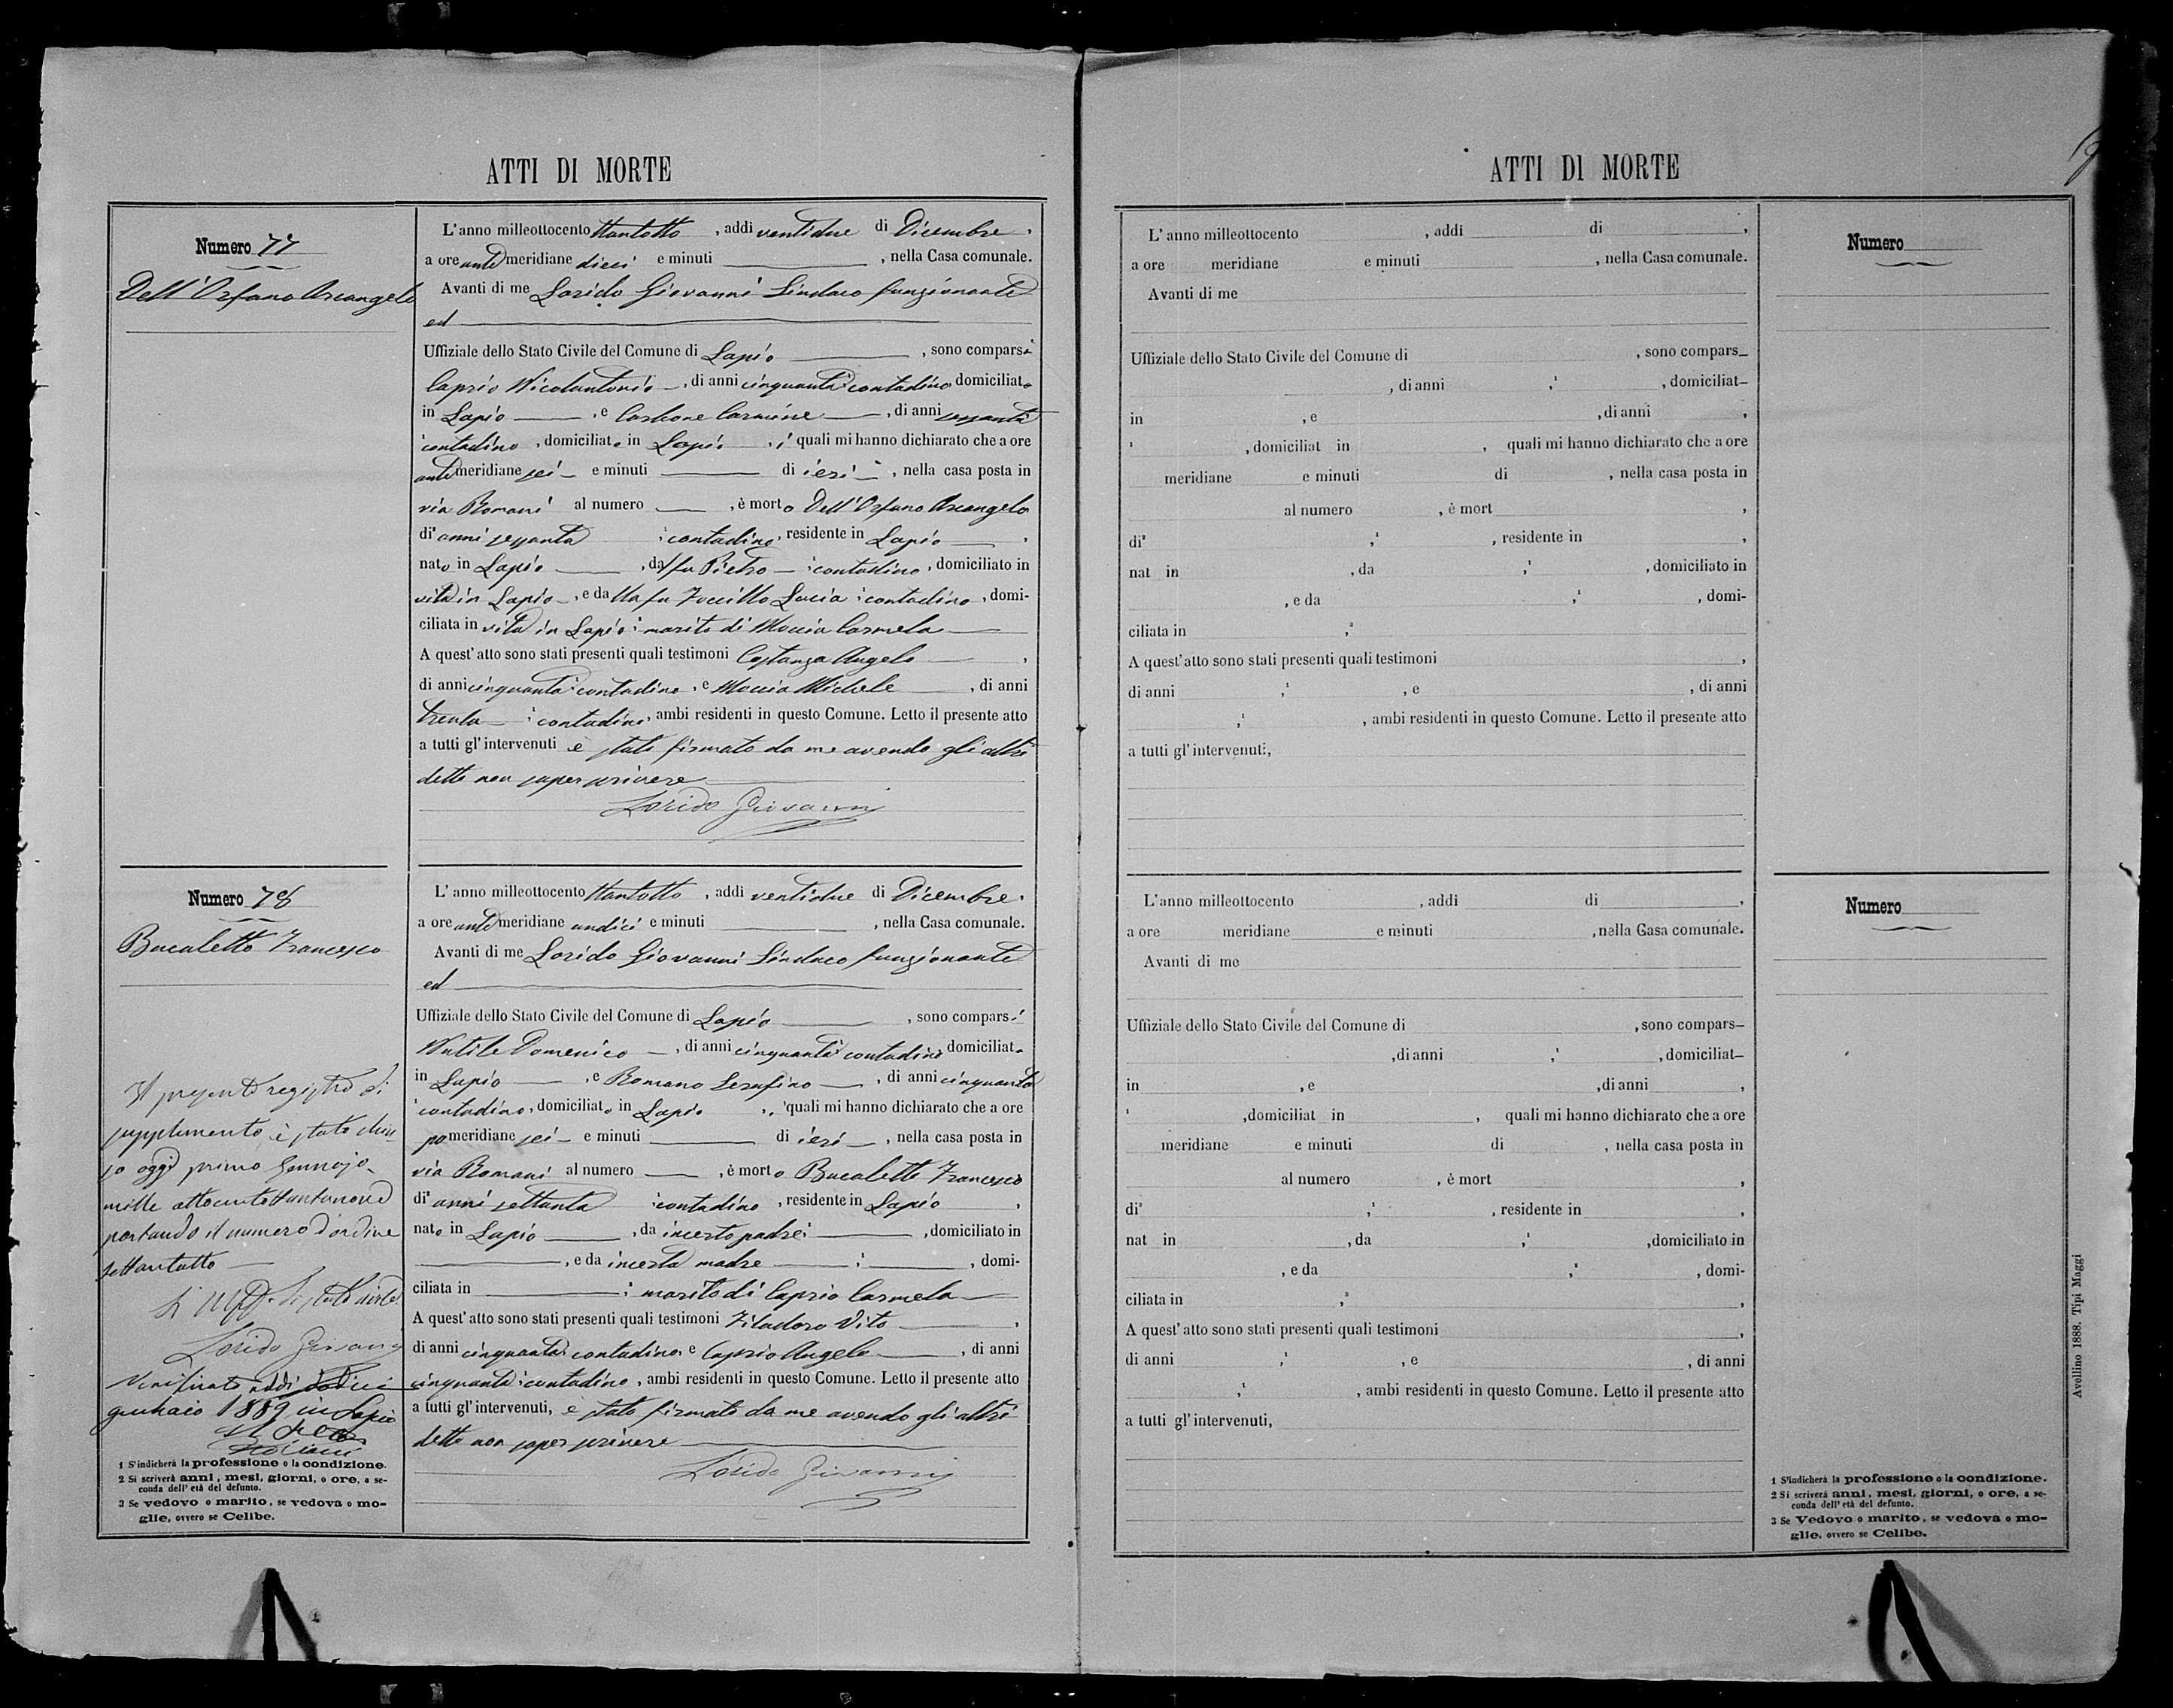 ATTI DI MORTE
Numero 77
Dell'Orfano Arcangelo
L'anno milleottocento ttantotto, addi ventidue di Dicembre,
a ore antemeridiane dieci e minuti, nella Casa comunale.
Avanti di me Lorido Giovanni Sindaco funzionante
ed
Uffiziale dello Stato Civile del Comune di Lapio, sono comparsi
Caprio Nicolantonio, di anni cinquanta contadino domiciliato
in Lapio, e Carbone Carmine, di anni sessanta
contadino, domiciliato in Lapio, i quali mi hanno dichiarato che a ore
antemeridiane sei e minuti di ieri, nella casa posta in
via Romani al numero, è morto Dell'Orfano Arcangelo
di anni sessanta contadino, residente in Lapio,
nato in Lapio, dal fu Pietro contadino, domiciliato in
vita in Lapio, e dalla fu Zoccillo Lucia contadina, domi-
ciliata in vita in Lapio marito di Moccia Carmela
A quest'atto sono stati presenti quali testimoni Costanza Angelo,
di anni cinquanta contadino, e Moccia Michele, di anni
trenta contadino, ambi residenti in questo Comune. Letto il presente atto
a tutti gl'intervenuti è stato firmato da me avendo gli altri
detto non saper scrivere
Lorido Giovanni
Numero 78
Bucaletto Francesco
L'anno milleottocento ttantotto, addi ventidue di Dicembre,
a ore antemeridiane undici e minuti, nella Casa comunale.
Avanti di me Lorido Giovanni Sindaco funzionante
ed
Uffiziale dello Stato Civile del Comune di Lapio, sono comparsi
Nutile Domenico, di anni cinquanta contadino domiciliato
in Lapio, e Romano Serafino, di anni cinquanta
contadino, domiciliato in Lapio, i quali mi hanno dichiarato che a ore
pomeridiane sei e minuti di ieri, nella casa posta in
via Romani al numero, è morto Bucaletto Francesco
di anni settanta contadino, residente in Lapio,
nato in Lapio, da incerto padre, domiciliato in
, e da incerta madre, domi-
ciliata in marito di Caprio Carmela
A quest'atto sono stati presenti quali testimoni Filadoro Vito,
di anni cinquanta contadino, e Caprio Angelo, di anni
cinquanta contadino, ambi residenti in questo Comune. Letto il presente atto
a tutti gl'intervenuti, è stato firmato da me avendo gli altri
detto non saper scrivere
Lorido Giovanni
Il presente registro di
supplimento è stato chiu
so oggi primo Gennajo
mille ottocentottantanove
portando il numero d'ordine
settantotto
Lorido Giovanni
Verificato addi dodici
gennaio 1889 in Lapio
1 S'indicherà la professione o la condizione.
2 Si scriverà anni, mesi, giorni, o ore, a se-
conda dell'età del defunto.
3 Se vedovo o marito, se vedova o mo-
glie, ovvero se Celibe.
ATTI DI MORTE
Numero
L'anno milleottocento, addi di,
a ore meridiane e minuti, nella Casa comunale.
Avanti di me
Uffiziale dello Stato Civile del Comune di, sono compars_
, di anni ,¹, domiciliat_
in, e, di anni,
¹, domiciliat in, quali mi hanno dichiarato che a ore
meridiane e minuti di, nella casa posta in
al numero, è mort,
di² ,¹, residente in,
nat in, da ,¹, domiciliato in
, e da ,¹, domi-
ciliata in ,³
A quest'atto sono stati presenti quali testimoni,
di anni ,¹, e, di anni
,¹, ambi residenti in questo Comune. Letto il presente atto
a tutti gl'intervenuti,
Numero
L'anno milleottocento, addi di,
a ore meridiane e minuti, nella Casa comunale.
Avanti di me
Uffiziale dello Stato Civile del Comune di, sono compars_
, di anni ,¹, domiciliat_
in, e, di anni,
¹, domiciliat in, quali mi hanno dichiarato che a ore
meridiane e minuti di, nella casa posta in
al numero, è mort,
di² ,¹, residente in,
nat in, da ,¹, domiciliato in
, e da ,¹, domi-
ciliata in ,³,
A quest'atto sono stati presenti quali testimoni,
di anni ,¹, e, di anni
,¹, ambi residenti in questo Comune. Letto il presente atto
a tutti gl'intervenuti,
1 S'indicherà la professione o la condizione.
2 Si scriverà anni, mesi, giorni, o ore, a se-
conda dell'età del defunto.
3 Se Vedovo o marito, se vedova o mo-
glie, ovvero se Celibe.
Avellino 1888. Tipi Maggi